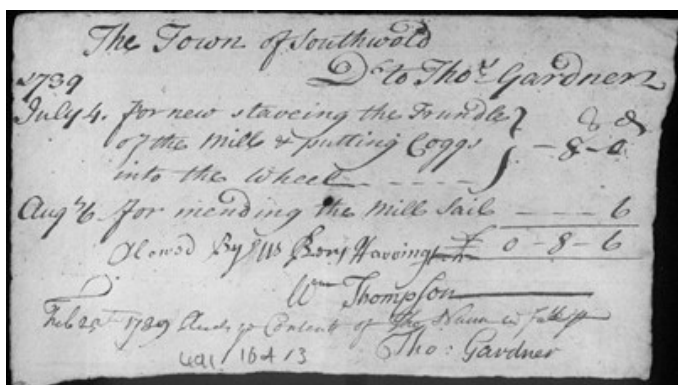 The Town of Southwold
Dr to Thos Gardner
1739
July 4. for new staveing the Trundle
of the Mill & putting Coggs - 8 - 0
into the Wheel
Augt 6 for mending the Mill Sail 6
Alowed By Us Benj Harrington £ 0 - 8 - 6
Wm Thompson
Feb 25 1739 Contents of
Tho: Gardner
491 / 10 A 13